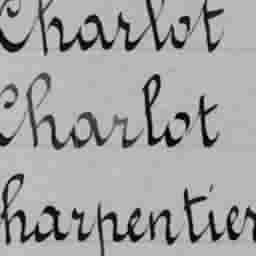 Charlot
Charlot
harpentier